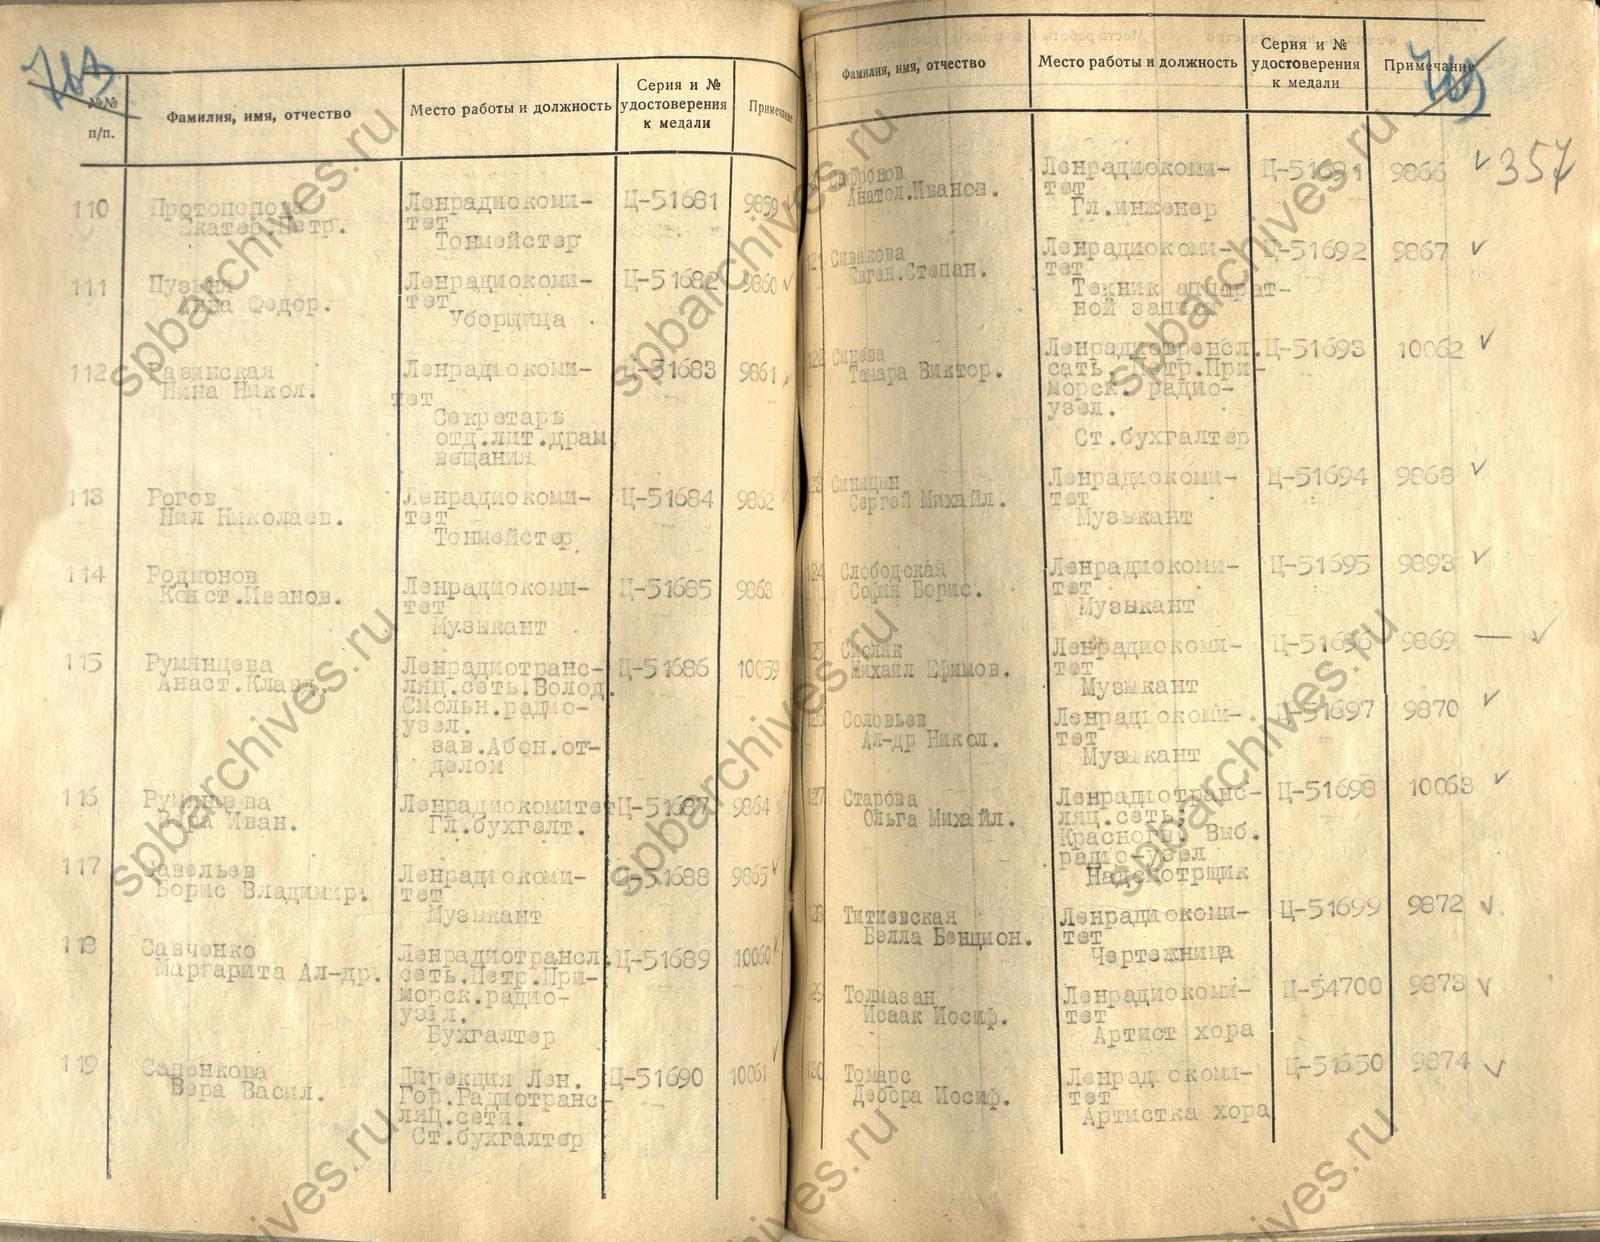 №№
п/п.
Фамилия, имя, отчество
Место работы и должность
Серия и №
удостоверения
к медали
110
Екатер.Петр.
Ленрадиокоми-
тет
Тонмейстер
Ц-51681
9859
111
Федор.
Ленрадиокоми-
тет
Уборщица
Ц-51682
9860
112
Нина Никол.
Ленрадиокоми-
тет
Секретарь
отд.лит.драм
вещания
Ц-51683
9861
113
Рогов
Нил Николаев.
Ленрадиокоми-
тет
Тонмейстер
Ц-51684
9862
114
Родионов
Конст.Иванов.
Ленрадиокоми-
тет
Музыкант
Ц-51685
9863
115
Румянцева
Анаст.Клавд.
Ленрадиотранс-
ляц.сеть.Волод.
Смольн.радио-
узел.
зав.Абон.от-
делом
Ц-51686
10059
116
Румянцева
Иван.
Ленрадиокомитет
Гл.бухгалт.
Ц-51687
9864
117
Савельев
Борис Владимир.
Ленрадиокоми-
тет
Музыкант
Ц-51688
9865
118
Савченко
Маргарита Ал-др.
Ленрадиотрансл.
сеть.Петр.При-
морск.радио-
узел.
Бухгалтер
Ц-51689
10060
119
Сапенкова
Вера Васил.
Дирекция Лен.
Гор.Радиотранс-
ляц.сети.
Ст.бухгалтер
Ц-51690
10061
Фамилия, имя, отчество
Место работы и должность
Серия и №
удостоверения
к медали
Примечание
357
Анатол.Иванов.
Ленрадиокоми-
тет
Гл.инженер
Ц-51691
9866
121
Сивакова
Евген.Степан.
Ленрадиокоми-
тет
Техник аппарат-
ной записи
Ц-51692
9867
122
Синева
Тамара Виктор.
Ленрадиотрансл.
сеть. Петр.При-
морск. радио-
узел.
Ст.бухгалтер
Ц-51693
10062
Синицын
Сергей Михайл.
Ленрадиокоми-
тет
Музыкант
Ц-51694
9868
124
Слободская
София Борис.
Ленрадиокоми-
тет
Музыкант
Ц-51695
9893
125
Смоляк
Михаил Ефимов.
Ленрадиокоми-
тет
Музыкант
Ц-51696
9869 —
126
Соловьев
Ал-др Никол.
Ленрадиокоми-
тет
Музыкант
Ц-51697
9870
127
Старова
Ольга Михайл.
Ленрадиотранс-
ляц.сеть;
Красногв. Выб.
радио-узел
Надсмотрщик
Ц-51698
10063
128
Титиевская
Белла Бенцион.
Ленрадиокоми-
тет
Чертежница
Ц-51699
9872
129
Толмазан
Исаак Иосиф.
Ленрадиокоми-
тет
Артист хора
Ц-54700
9873
130
Томарс
Дебора Иосиф.
Ленрадиокоми-
тет
Артистка хора
Ц-51650
9874
spbarchives.ru